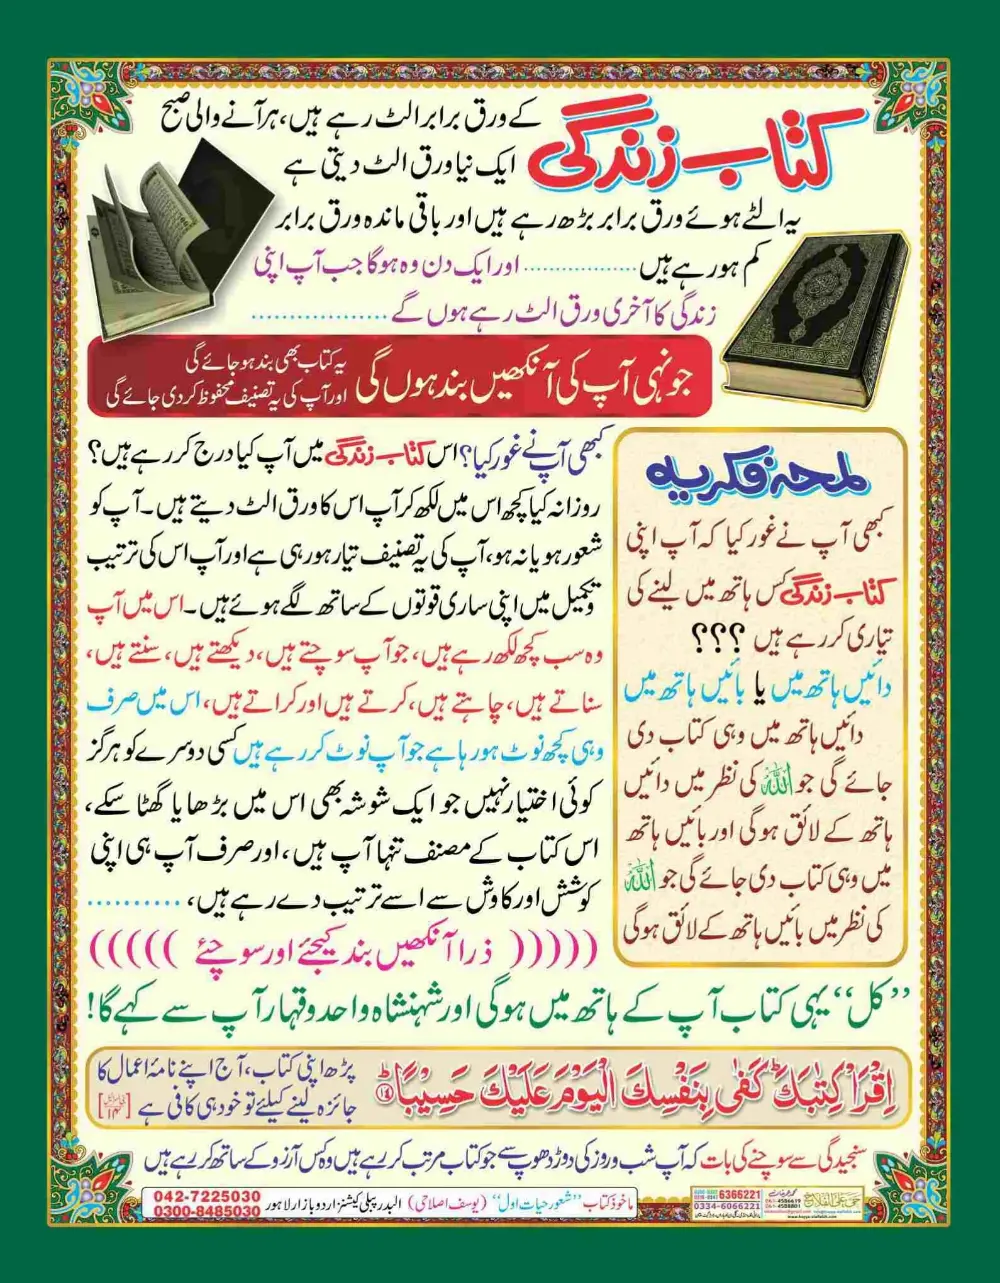 کتاب زندگی کے ورق برابر الٹ رہے ہیں، ہر آنے والی صبح
ایک نیا ورق الٹ دیتی ہے
یہ الٹے ہوئے ورق برابر بڑھ رہے ہیں اور باقی ماندہ ورق برابر
کم ہو رہے ہیں ................. اور ایک دن وہ ہوگا جب آپ اپنی
زندگی کا آخری ورق الٹ رہے ہوں گے .................
جونہی آپ کی آنکھیں بند ہوں گی
یہ کتاب بھی بند ہو جائے گی
اور آپ کی یہ تصنیف محفوظ کر دی جائے گی
لمحہ فکریہ
کبھی آپ نے غور کیا کہ آپ اپنی
کتاب زندگی کس ہاتھ میں لینے کی
تیاری کر رہے ہیں ؟؟؟
دائیں ہاتھ میں یا بائیں ہاتھ میں
دائیں ہاتھ میں وہی کتاب دی
جائے گی جو اللہ کی نظر میں دائیں
ہاتھ کے لائق ہوگی اور بائیں ہاتھ
میں وہی کتاب دی جائے گی جو اللہ
کی نظر میں بائیں ہاتھ کے لائق ہوگی
کبھی آپ نے غور کیا؟ اس کتاب زندگی میں آپ کیا درج کر رہے ہیں؟
روزانہ کیا کچھ اس میں لکھ کر آپ اس کا ورق الٹ دیتے ہیں۔ آپ کو
شعور ہو یا نہ ہو، آپ کی یہ تصنیف تیار ہو رہی ہے اور آپ اس کی ترتیب
و تکمیل میں اپنی ساری قوتوں کے ساتھ لگے ہوئے ہیں۔ اس میں آپ
وہ سب کچھ لکھ رہے ہیں، جو آپ سوچتے ہیں، دیکھتے ہیں، سنتے ہیں،
سناتے ہیں، چاہتے ہیں، کرتے ہیں اور کراتے ہیں، اس میں صرف
وہی کچھ نوٹ ہو رہا ہے جو آپ نوٹ کر رہے ہیں کسی دوسرے کو ہرگز
کوئی اختیار نہیں جو ایک شوشہ بھی اس میں بڑھا یا گھٹا سکے،
اس کتاب کے مصنف تنہا آپ ہیں، اور صرف آپ ہی اپنی
کوشش اور کاوش سے اسے ترتیب دے رہے ہیں، ..........
((((( ذرا آنکھیں بند کیجئے اور سوچئے )))))
’’کل‘‘ یہی کتاب آپ کے ہاتھ میں ہوگی اور شہنشاہ واحد و قہار آپ سے کہے گا!
اِقْرَاْ كِتٰبَكَ ؕ كَفٰى بِنَفْسِكَ الْیَوْمَ عَلَیْكَ حَسِیْبًا ؕ۱۴
پڑھ اپنی کتاب، آج اپنے نامۂ اعمال کا
جائزہ لینے کیلئے تو خود ہی کافی ہے
سنجیدگی سے سوچنے کی بات کہ آپ شب و روز کی دوڑ دھوپ سے جو کتاب مرتب کر رہے ہیں وہ کس آرزو کے ساتھ کر رہے ہیں
ماخوذ کتاب ’’شعور حیات اول‘‘ (یوسف اصلاحی) البدر پبلی کیشنز اردو بازار لاہور
042-7225030
0300-8485030
6366221
0334-6066221